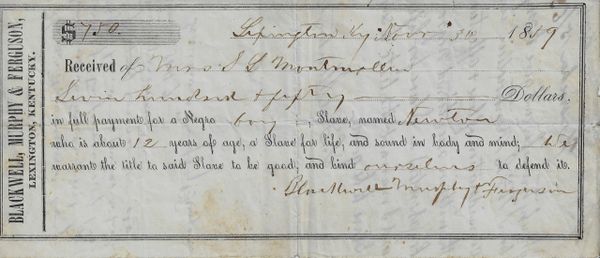 BLACKWELL, MURPHY & FERGUSON,
LEXINGTON, KENTUCKY.
$750.
Lexington Ky Nov 1859
Received of Mrs
Seven hundred & fifty Dollars.
in full payment for a Negro boy Slave, named Newton
who is about 12 years of age, a Slave for life, and sound in body and mind; We
warrant the title to said Slave to be good, and bind ourselves to defend it.
Blackwell Murphy & Ferguson